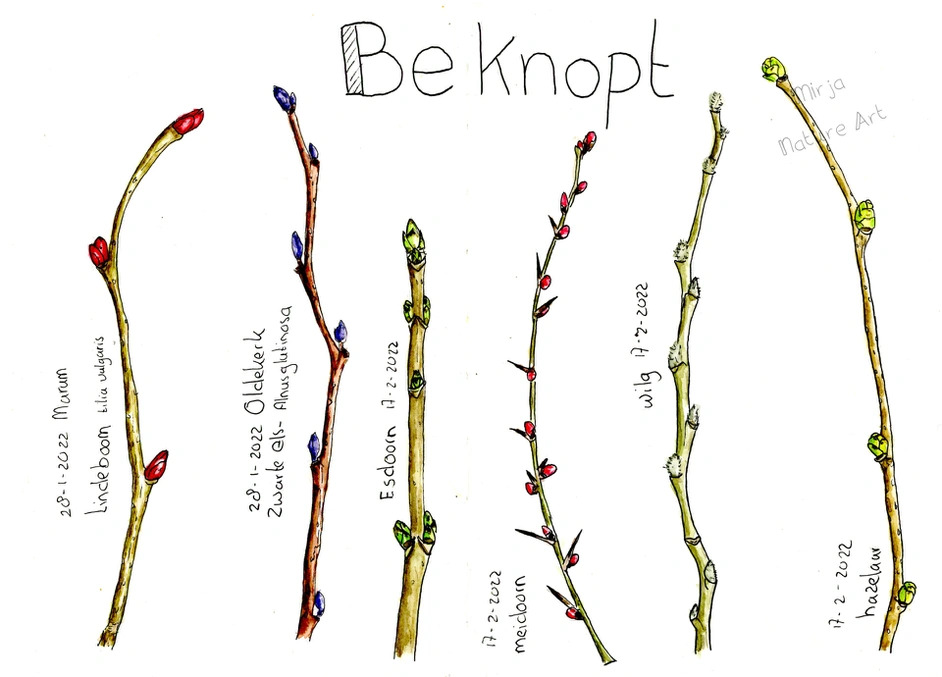 Beknopt
Mirja
Nature Art
28-1-2022 Marum
Lindeboom tilia vulgaris
28-1-2022 Oldekerk
Zwarte els- Alnusglutinosa
Esdoorn 17-2-2022
17-2-2022
meidoorn
wilg 17-2-2022
17-2-2022
hazelaar